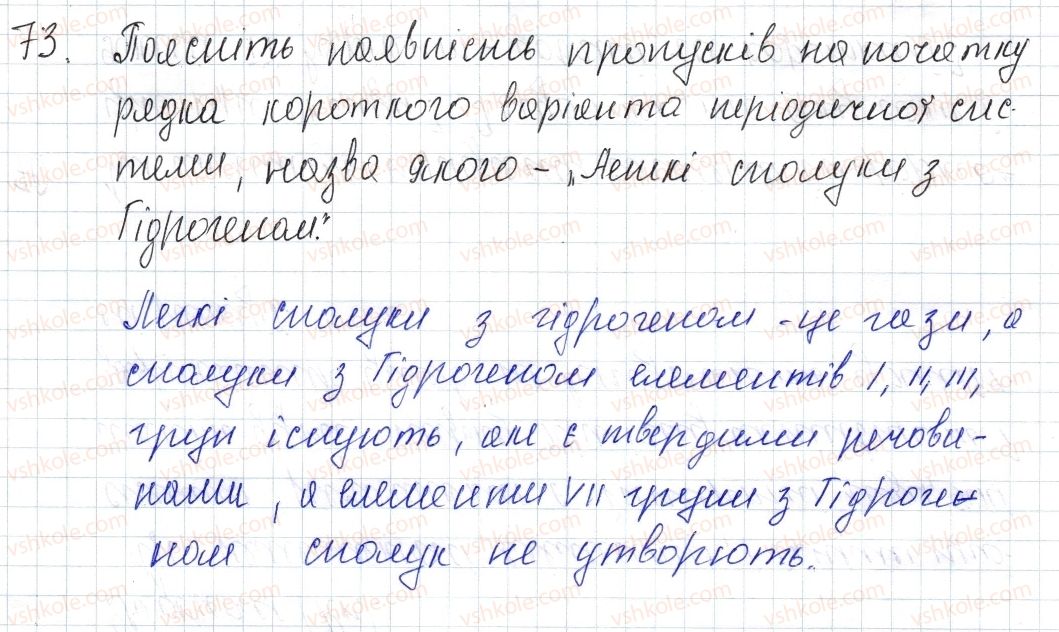 73. Поясніть наявність пропусків на початку
рядка короткого варіанта періодичної сис-
теми, назва якого - „Леткі сполуки з
Гідрогеном".
Легкі сполуки з гідрогеном - це гази, а
сполуки з Гідрогеном елементів I, II, III,
груп існують, але є твердими речови-
нами, а елементи VII групи з Гідроге-
ном сполук не утворюють.